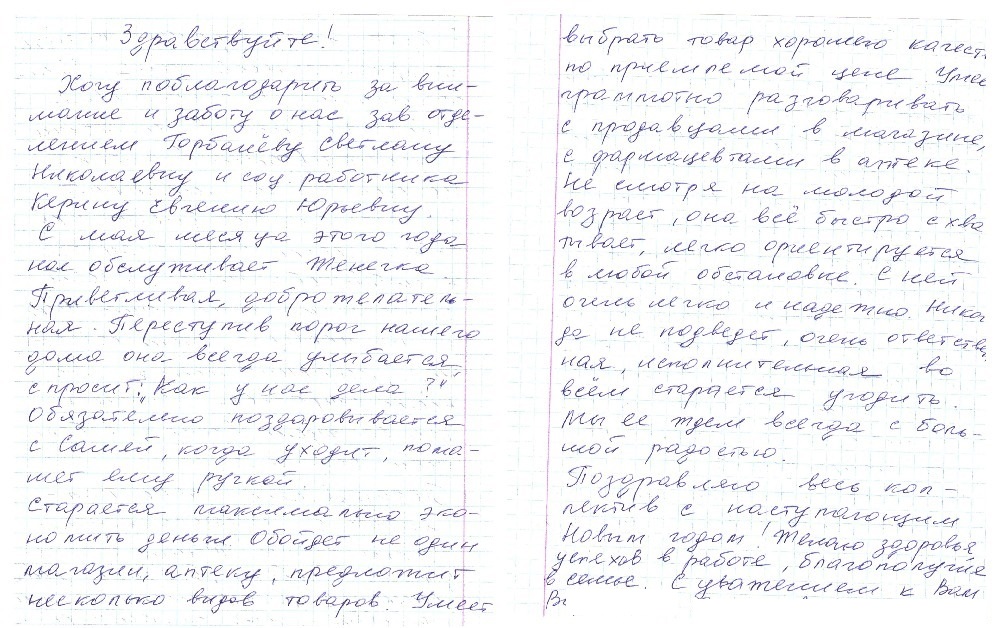 Здравствуйте!
Хочу поблагодарить за вни-
мание и заботу о нас зав отде-
лением Горбанёву Светлану
Николаевну и соц. работника
Керину Евгению Юрьевну.
С мая месяца этого года
нас обслуживает Женечка
Приветливая, доброжелатель-
ная. Переступив порог нашего
дома она всегда улыбается,
спросит: „Как у нас дела?"
Обязательно поздаровывается
с Сашей, когда уходит, пома-
шет ему ручкой.
Старается максимально эко-
номить деньги Обойдет не один
магазин, аптеку, предложит
несколько видов товаров. Умеет
выбрать товар хорошего качест
по приемлемой цене Умее
граммотно разговаривать
с продавцами в магазине,
с фармацевтами в аптеке.
Не смотря на молодой
возраст, она всё быстро схва
тывает, легко ориентируется
в любой обстановке. С ней
очень легко и надежно. Никог
да не подведет, очень ответствен
ная, исполнительная во
всём старается угодить.
Мы ее ждем всегда с боль-
шой радостью.
Поздравляю весь кол-
лектив с наступающим
Новым годом! Желаю здоровья
успехов в работе, благополучие
в семье. С уважением к Вам